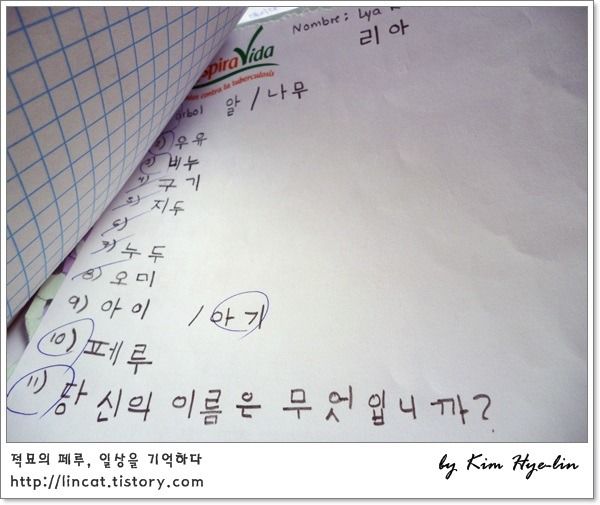 Nombre: Lya
리아
spiraVida
contra la tuberculosis
arbol 알 / 나무
2) 우유
3) 비누
4) 구기
5) 지두
6)
7) 누두
8) 오미
9) 아이 / 아기
10) 페루
11) 당신의 이름은 무엇입니까?
적묘의 페루, 일상을 기억하다
by Kim Hye-lin
http://lincat.tistory.com